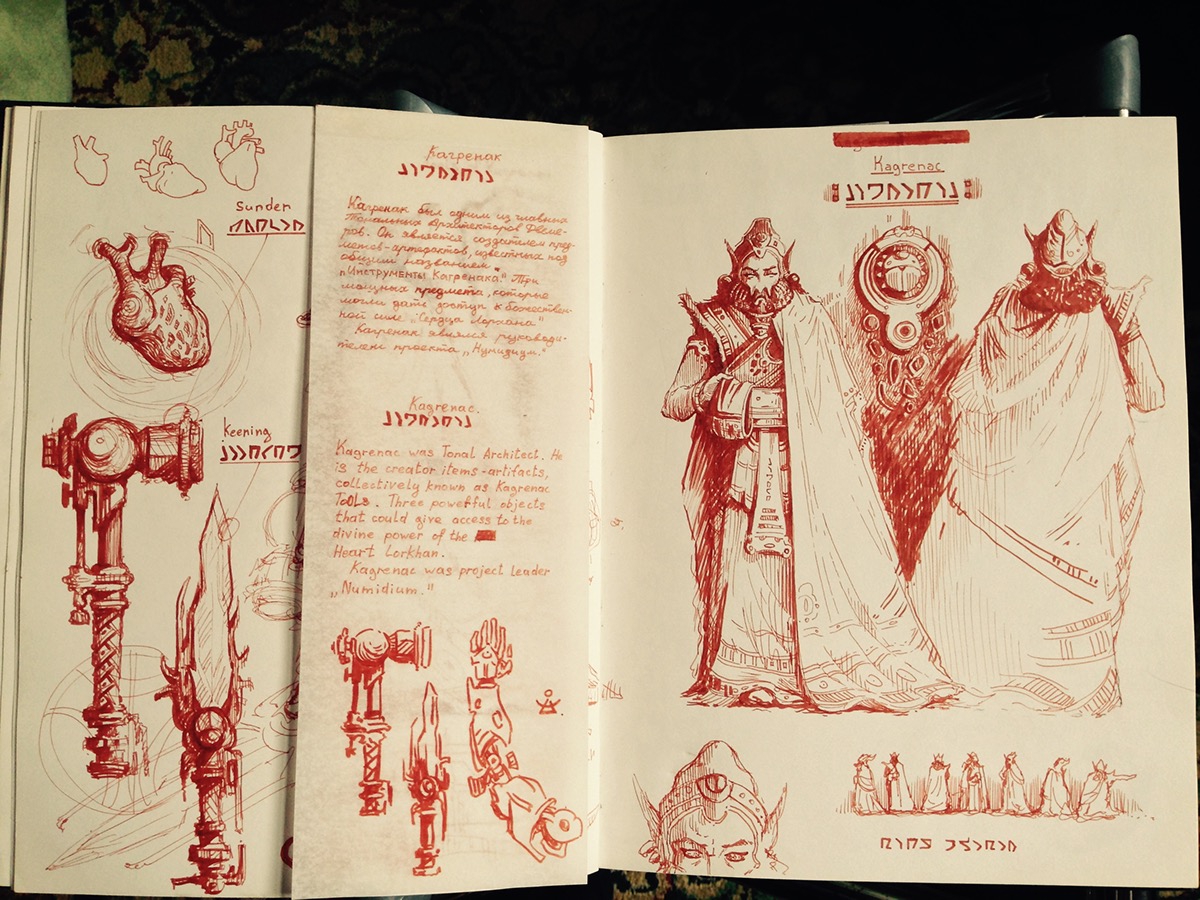 Sunder
Keening
Кагренак
Кагренак был одним из главных
Тональных Архитекторов Двеме-
ров. Он является создателем пред-
метов-артефактов, известных под
общим названием
„Инструменты Кагренака". Три
мощных предмета, которые
могли дать доступ к божествен-
ной силе „Сердца Лорхана"
Кагренак являлся руководи-
телем проекта „Нумидиум."
Kagrenac.
Kagrenac was Tonal Architect. He
is the creator items-artifacts,
collectively known as Kagrenac
TOOLs. Three powerful objects
that could give access to the
divine power of the
Heart Lorkhan.
Kagrenac was project leader
„Numidium."
Kagrenac